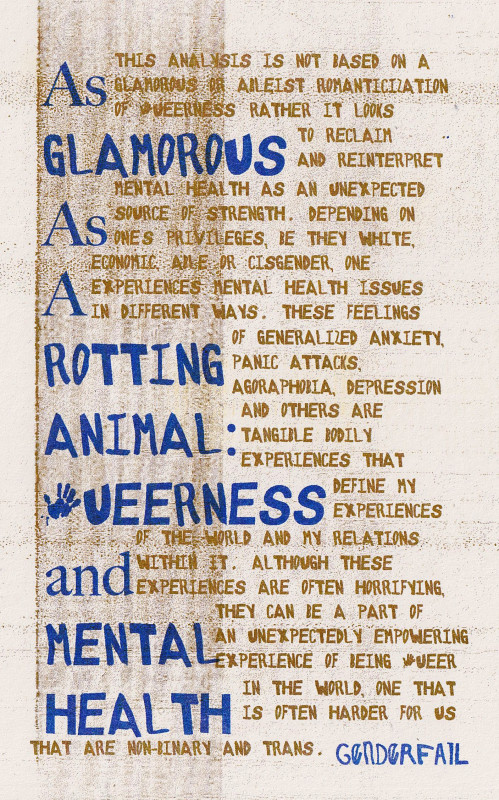 As
GLAMOROUS
As
A
ROTTING
ANIMAL:
QUEERNESS
and
MENTAL
HEALTH
THIS ANALYSIS IS NOT BASED ON A
GLAMOROUS OR ABLEIST ROMANTICIZATION
OF QUEERNESS RATHER IT LOOKS
TO RECLAIM
AND REINTERPRET
MENTAL HEALTH AS AN UNEXPECTED
SOURCE OF STRENGTH. DEPENDING ON
ONES PRIVILEGES, BE THEY WHITE,
ECONOMIC, ABLE OR CISGENDER, ONE
EXPERIENCES MENTAL HEALTH ISSUES
IN DIFFERENT WAYS. THESE FEELINGS
OF GENERALIZED ANXIETY,
PANIC ATTACKS,
AGORAPHOBIA, DEPRESSION
AND OTHERS ARE
TANGIBLE BODILY
EXPERIENCES THAT
DEFINE MY
EXPERIENCES
OF THE WORLD AND MY RELATIONS
WITHIN IT. ALTHOUGH THESE
EXPERIENCES ARE OFTEN HORRIFYING,
THEY CAN BE A PART OF
AN UNEXPECTEDLY EMPOWERING
EXPERIENCE OF BEING QUEER
IN THE WORLD, ONE THAT
IS OFTEN HARDER FOR US
THAT ARE NON-BINARY AND TRANS.
GENDERFAIL